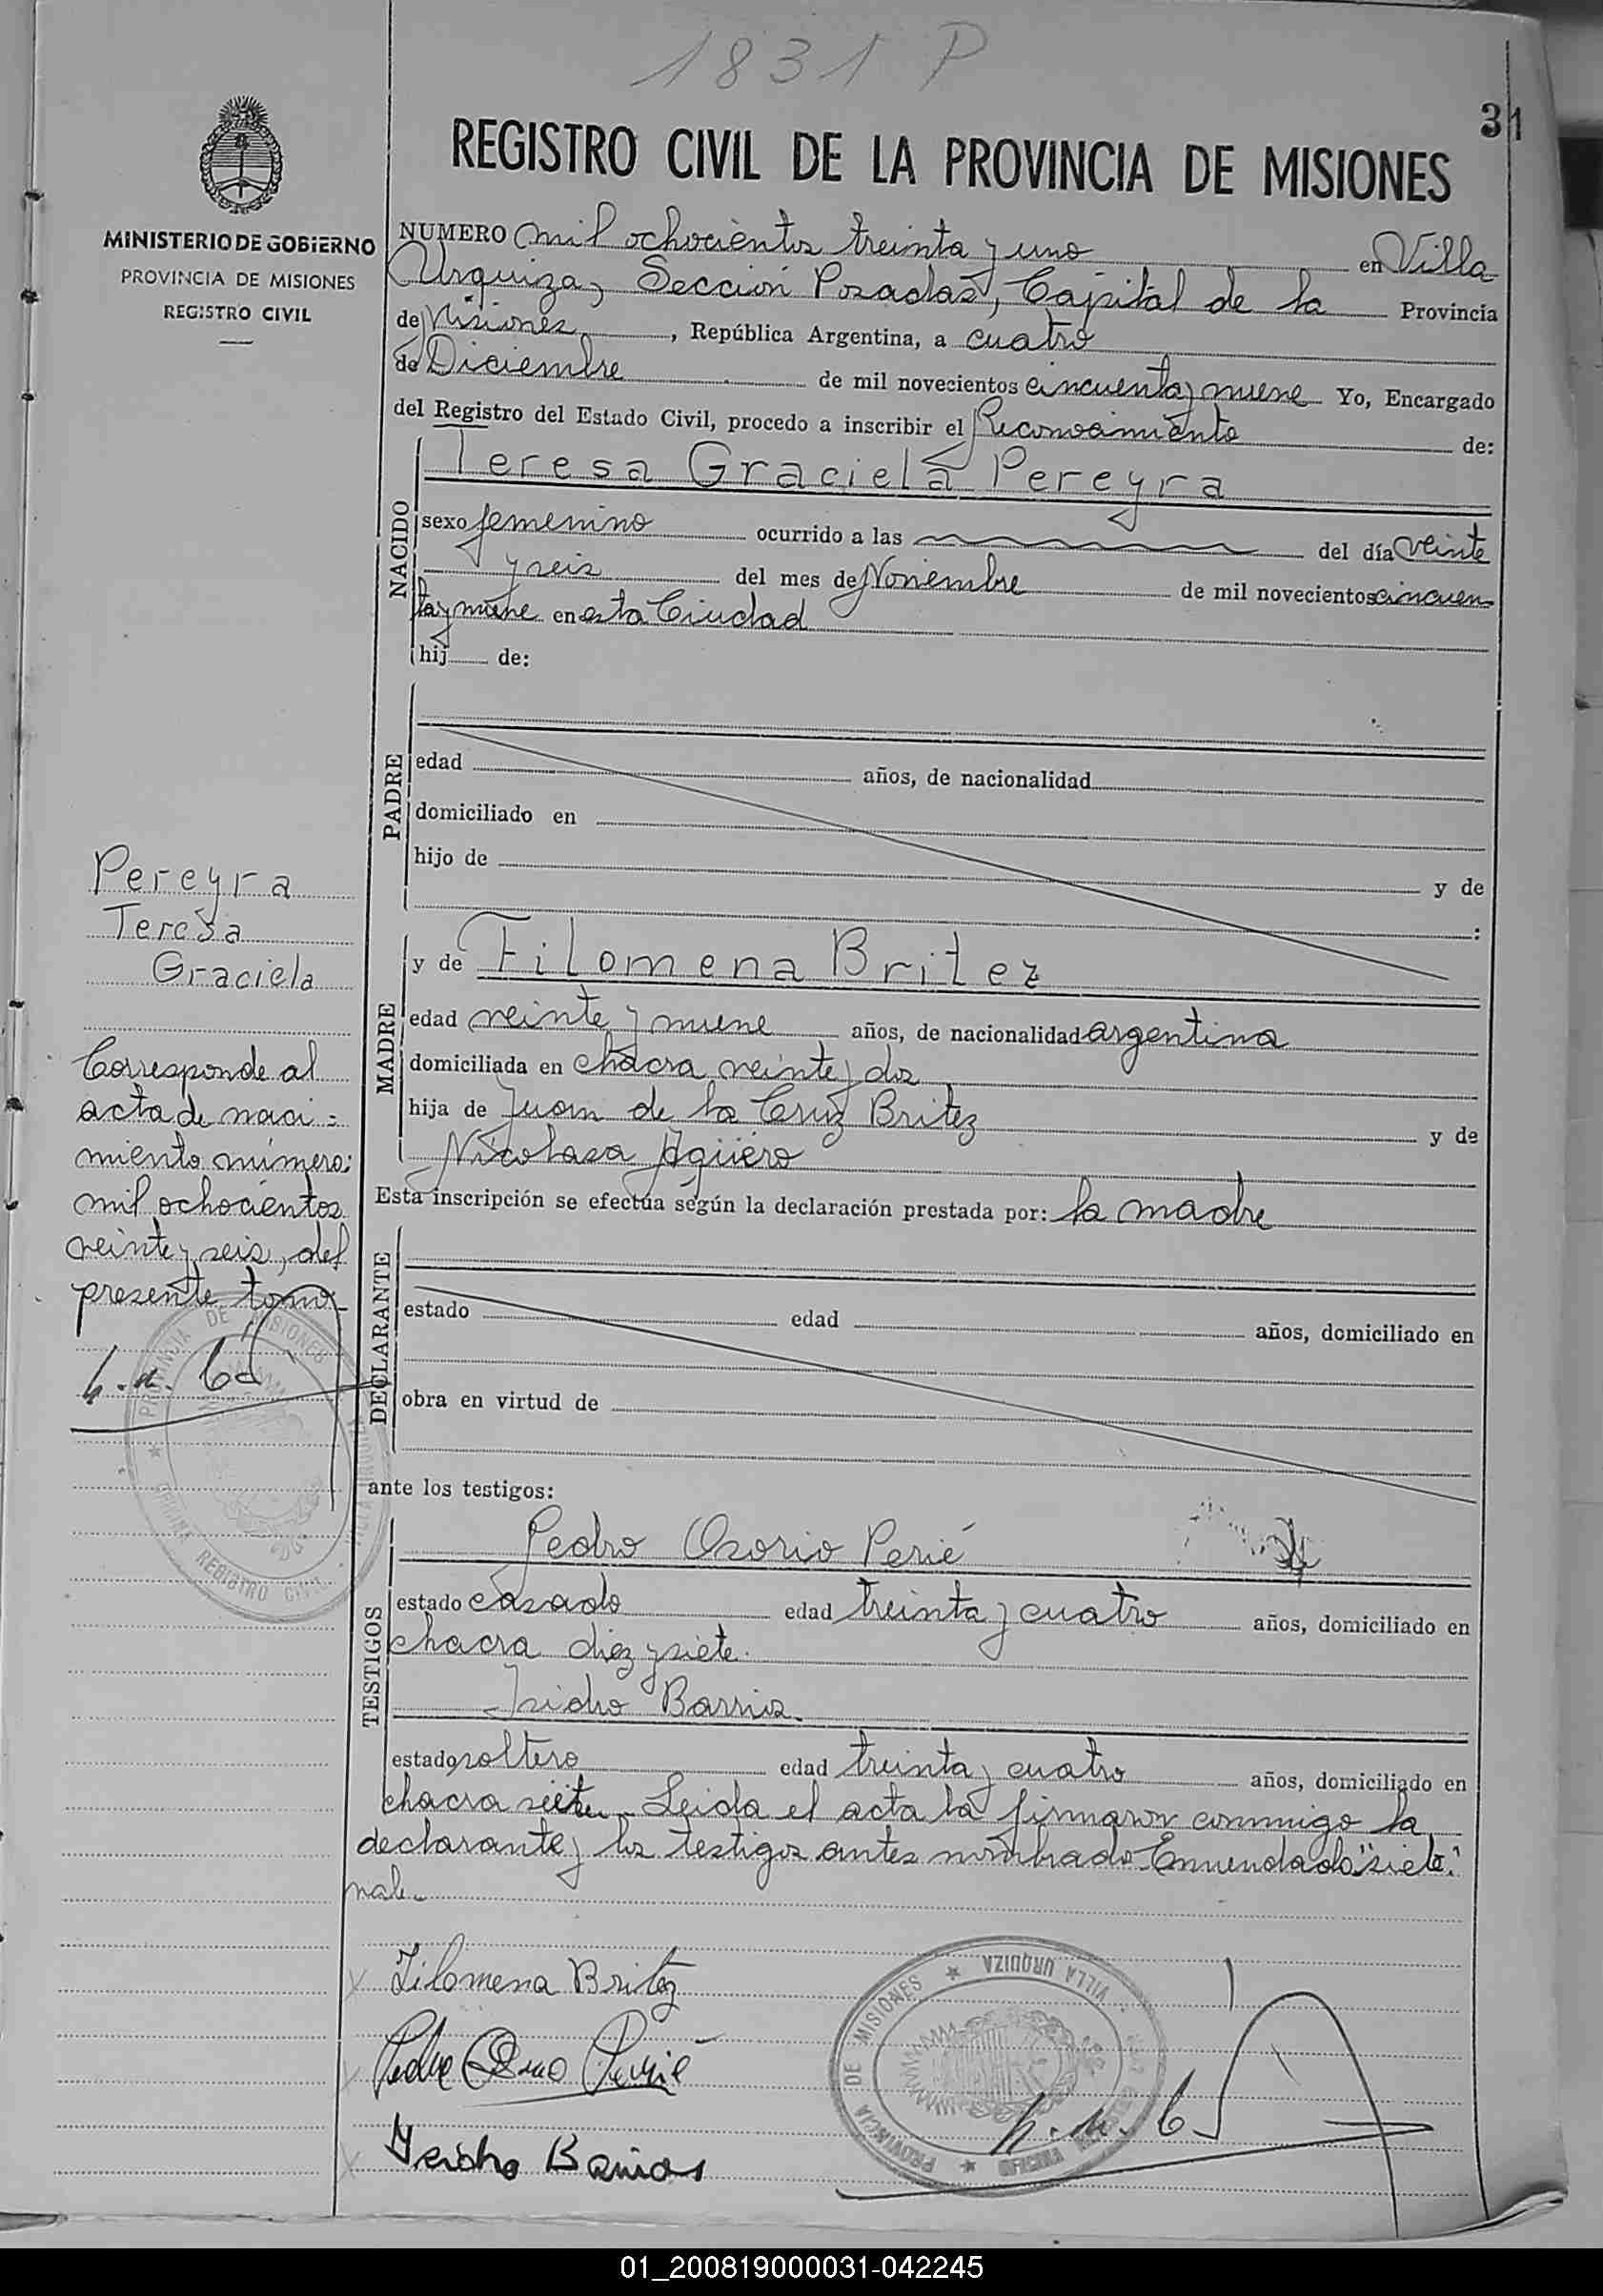 1831 P
31
REGISTRO CIVIL DE LA PROVINCIA DE MISIONES
MINISTERIO DE GOBIERNO
PROVINCIA DE MISIONES
REGISTRO CIVIL
NUMERO mil ochocientos treinta y uno en Villa
Urquiza, Sección Posadas, Capital de la Provincia
de Misiones, República Argentina, a cuatro
de Diciembre de mil novecientos cincuenta y nueve Yo, Encargado
del Registro del Estado Civil, procedo a inscribir el Reconocimiento de:
NACIDO
Teresa Graciela Pereyra
sexo femenino ocurrido a las del día veinte
y seis del mes de Noviembre de mil novecientos cincuen
ta y nueve en esta Ciudad
hij de:
PADRE
edad años, de nacionalidad
domiciliado en
hijo de y de
:
Pereyra
Teresa
Graciela
MADRE
y de Filomena Britez
edad veinte y nueve años, de nacionalidad argentina
domiciliada en chacra veinte y dos
hija de Juan de la Cruz Britez y de
Nicolasa Agüero
Corresponde al
acta de naci=
miento número:
mil ochocientos
veinte y seis, del
presente tomo
Esta inscripción se efectúa según la declaración prestada por: la madre
DECLARANTE
estado edad años, domiciliado en
obra en virtud de
PROVINCIA DE MISIONES
REGISTRO CIVIL
ante los testigos:
TESTIGOS
Pedro Osorio Perié
estado casado edad treinta y cuatro años, domiciliado en
chacra diez y siete.
Isidro Barrios.
estado soltero edad treinta y cuatro años, domiciliado en
chacra siete. Leida el acta la firmaron conmigo la
declarante y los testigos antes nombrado Enmendado "siete."
vale.
Filomena Britez
Pedro Osorio Perié
Isidro Barrios
PROVINCIA DE MISIONES ★ VILLA URQUIZA
01_200819000031-042245